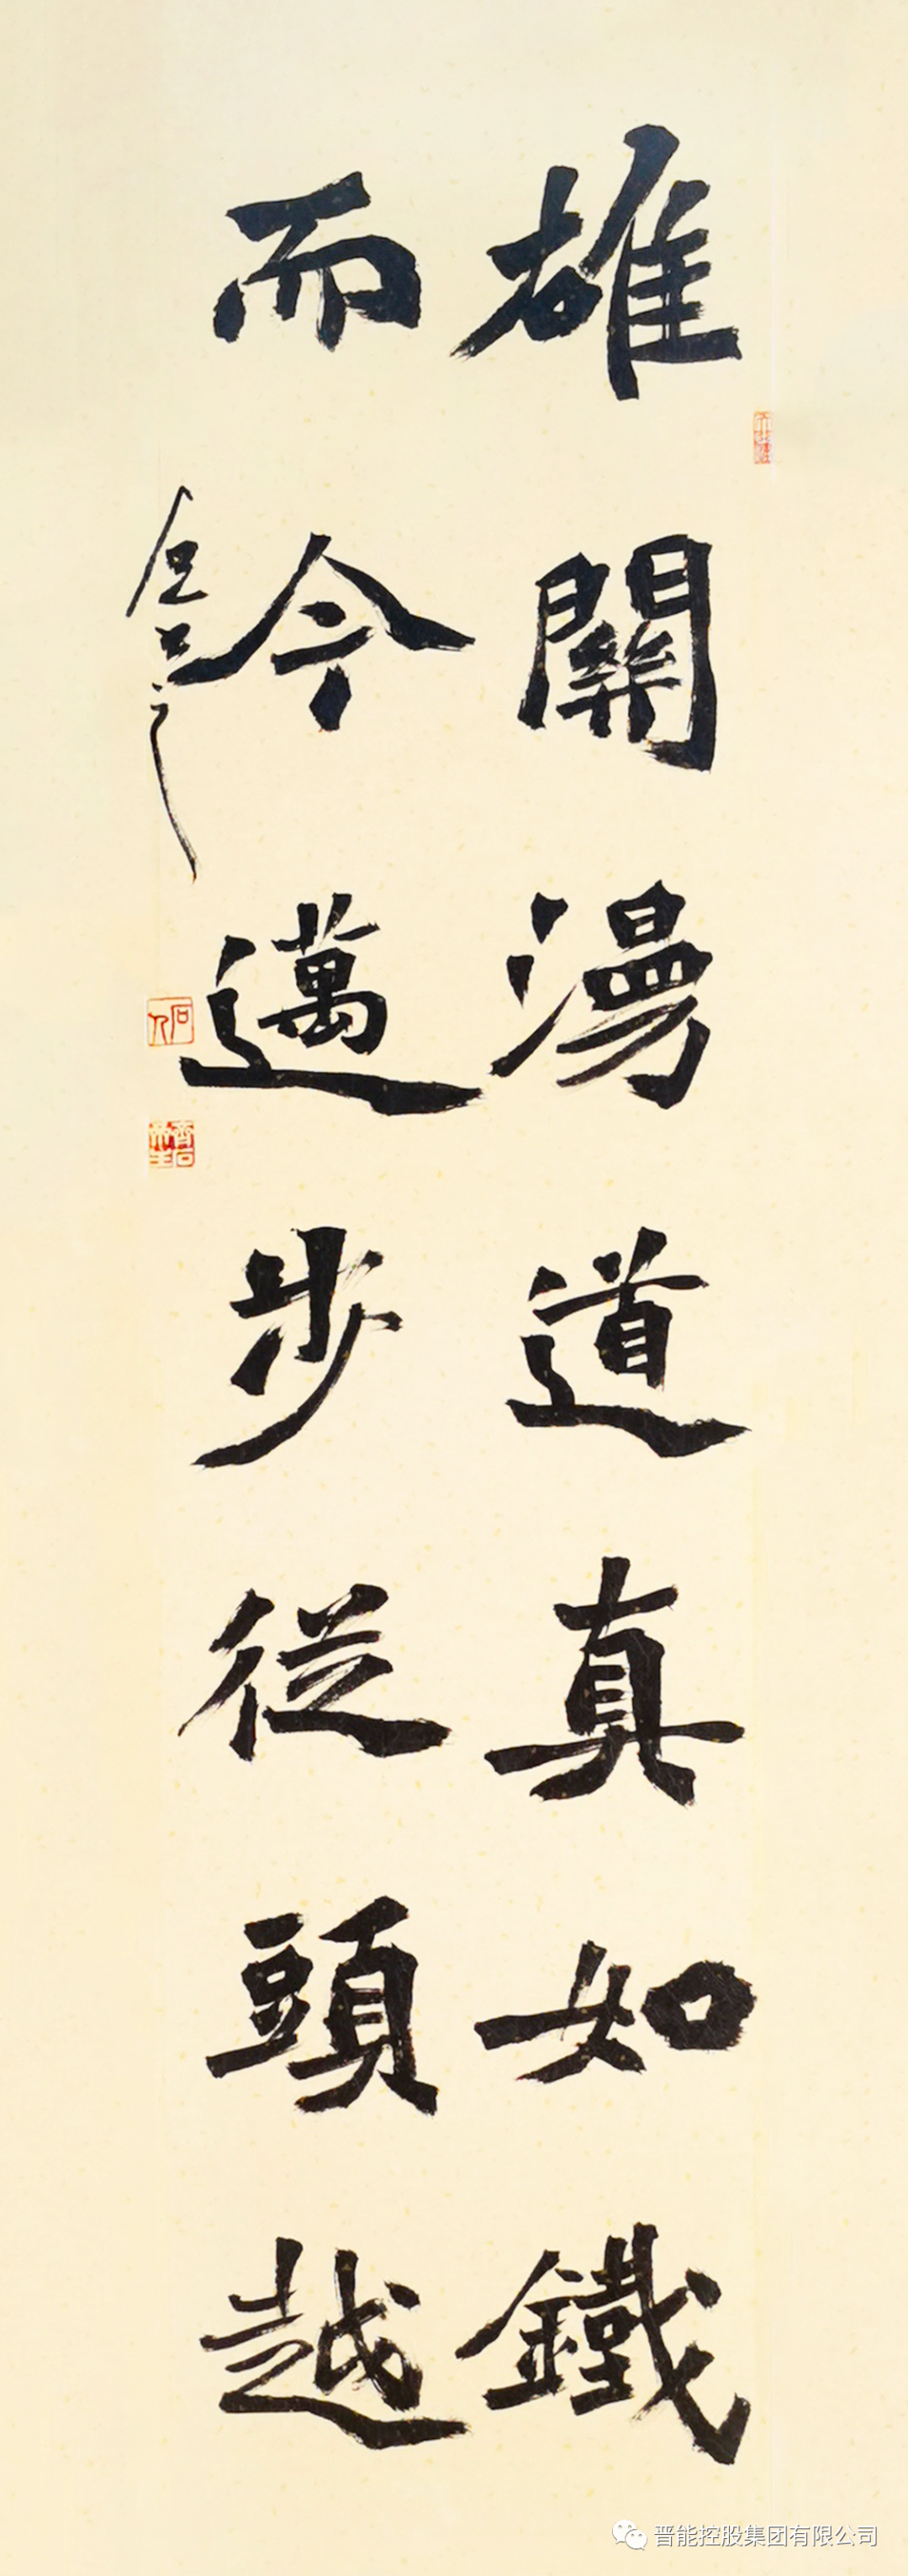 雄關漫道真如鐵
而今邁步從頭越
石人
晋能控股集团有限公司